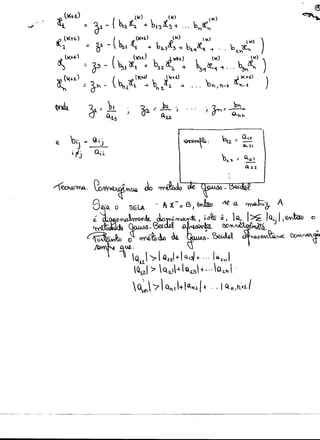 x₁^(k+1) = z₁ - (b₁₂ x₂^(k) + b₁₃ x₃^(k) + ... b₁ₙ xₙ^(k))
x₂^(k+1) = z₂ - (b₂₁ x₁^(k+1) + b₂₃ x₃^(k) + b₂₄ x₄^(k) + ... b₂ₙ xₙ^(k))
x₃^(k+1) = z₃ - (b₃₁ x₁^(k+1) + b₃₂ x₂^(k+1) + b₃₄ x₄^(k) + ... b₃ₙ xₙ^(k))
xₙ^(k+1) = zₙ - (bₙ₁ x₁^(k+1) + bₙ₂ x₂^(k+1) + ... bₙ,ₙ₋₁ xₙ₋₁^(k+1))
onde z₁ = b₁/a₁₁ ; z₂ = b₂/a₂₂ ; ... ; zₙ = bₙ/aₙₙ
e bij = aij/aii
i≠j
exemplo: b₁₂ = a₁₂/a₁₁
b₂₁ = a₂₁/a₂₂
Teorema Convergência do método de Gauss-Seidel
Seja o SELA AX = B, então se a matriz A
é diagonalmente dominante, isto é, então o
Gauss-Seidel apresenta
Portanto o método de Gauss-Seidel convergê
sempre que:
|a₁₁| > |a₁₂| + |a₁₃| + ... |a₁ₙ|
|a₂₂| > |a₂₁| + |a₂₃| + ... |a₂ₙ|
|aₙₙ| > |aₙ₁| + |aₙ₂| + ...